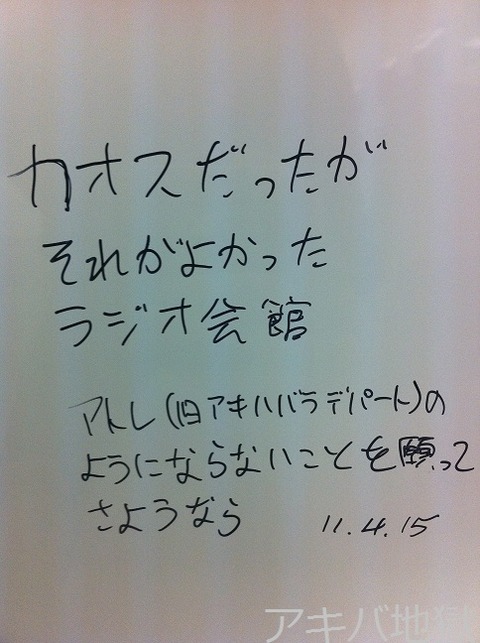 カオスだったが
それがよかった
ラジオ会館
アトレ(旧アキハバラデパート)の
ようにならないことを願って
さようなら
11.4.15
アキバ地獄